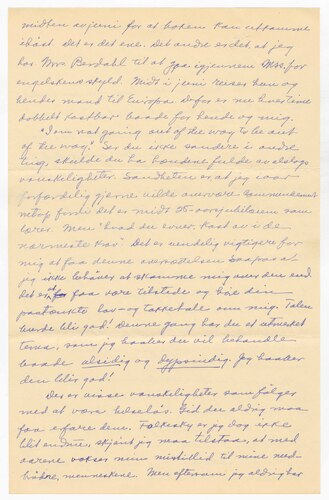 midten av juni for at boken kan utkomme
ihöst. Det er det ene. Det andre er det at jeg
har Mrs. Berdahl til at gaa igjennem Mss. for
engelskens skyld. Midt i juni reiser hun og
hendes mand til Europa. Derfor er nu hver time
dobbelt kostbar baade for hende og mig.
"I am not going out of the way to be out
of the way." Ser du ikke sandere i andre
ting, skulde du ha hændene fulde av
vanskeligheter. Sandheten er at jeg var
forfærdelig gjerne vilde overvære commencement
netop fordi det er mit 25-aarsjubilæum som
lærer. Men "hvad du evner kast av i de
nærmeste krav." Det er uendelig vigtigere for
mig at faa denne oversættelsen saapas at
jeg ikke behöver at skamme mig over den end
det er at faa være tilstede og höre din
paatænkte lov- og takketale om mig. Talen
burde bli god! Denne gang har du et utmerket
tema, som jeg haaber du vil behandle
baade alsidig og dypsindig. Jeg haaber
den blir god!
Det er visse vanskeligheter som fölger
med at være helselös. Gid du aldrig maa
faa erfare dem. Folkesky er jeg dog ikke
blit endnu, skjönt jeg maa tilstaa, at med
aarene vokser min mistillid til mine med-
brödre, menneskene. Men eftersom jeg aldrig har